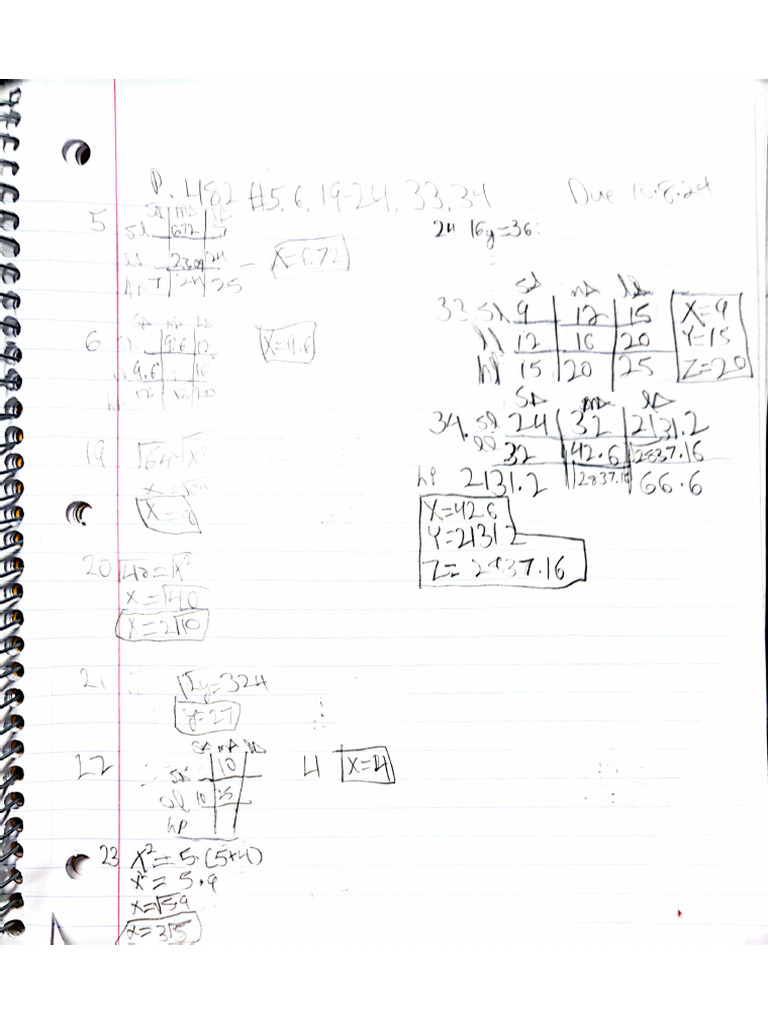 P. 482 #5, 6, 19-24, 33, 34 Due 10.8.24
5
sΔ mΔ lΔ
sl 6.72 7
ll 23.04 24
hp 7 24 25
X=6.72
6
sΔ mΔ lΔ
sl 9.6 12
9.6 16
hp 12 20
X=9.6
19 √64=√x²
X=8
20 √40=√x²
x=√40
x=2√10
21 12y=324
y=27
22
sΔ mΔ lΔ
sl 10
ll 10 25
hp
4 X=4
23 x²=5·(5+4)
x²=5·9
x=√5·9
x=3√5
24 16y=36
33.
sΔ mΔ lΔ
sl 9 12 15
ll 12 16 20
hl 15 20 25
X=9
Y=15
Z=20
34.
sΔ mΔ lΔ
sl 24 32 2131.2
ll 32 42.6 2837.16
hp 2131.2 2837.16 66.6
X=42.6
Y=2131.2
Z=2837.16